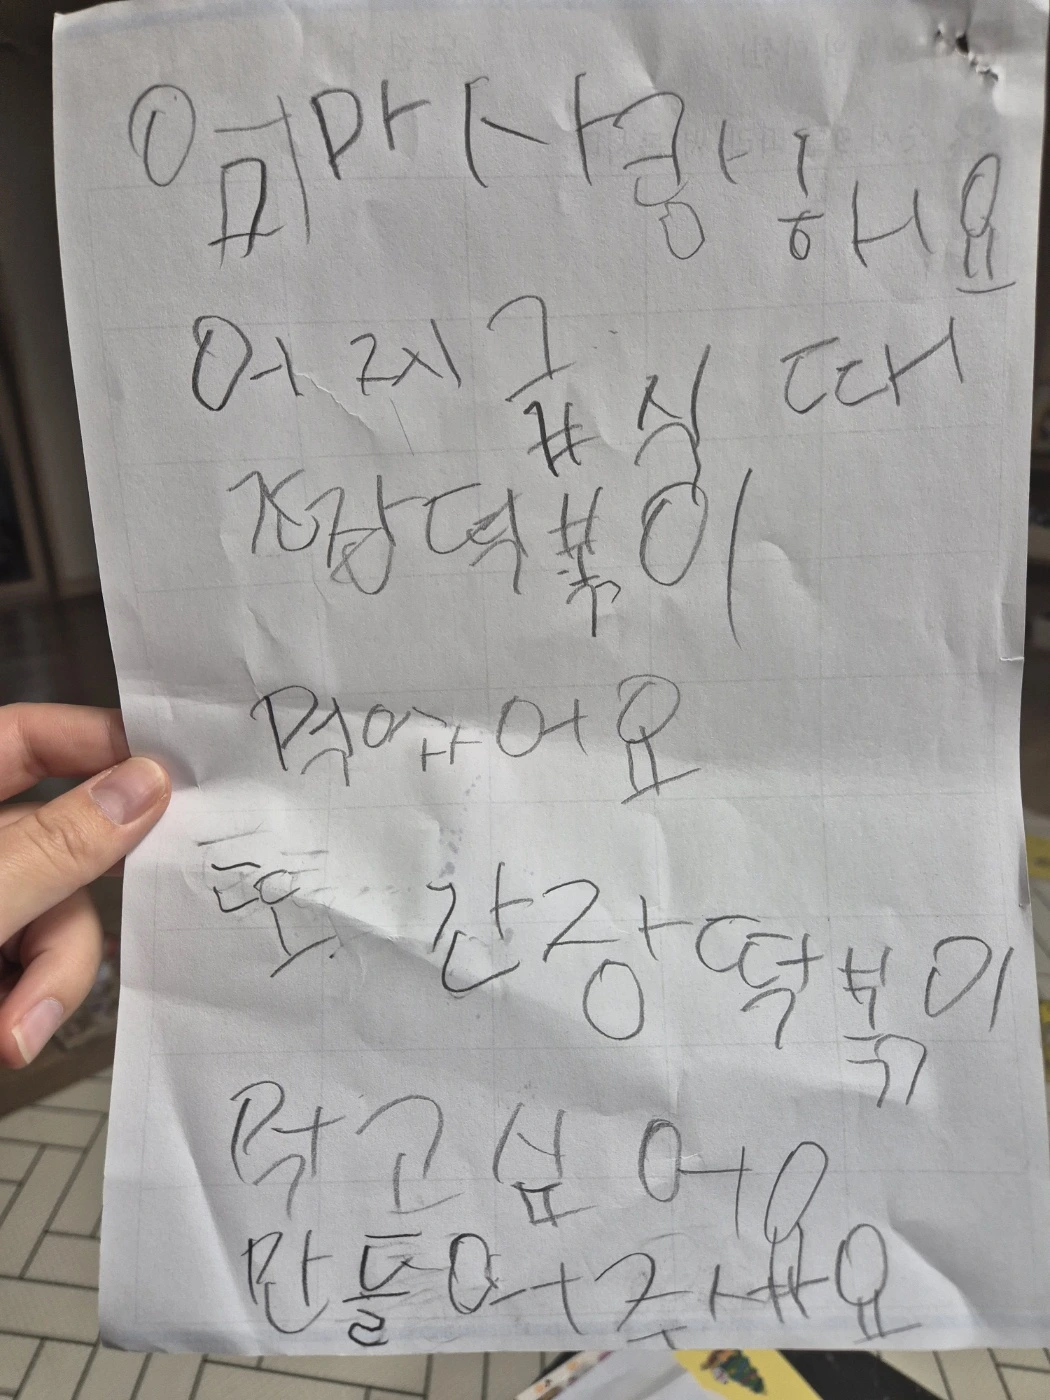 엄마 사랑해요
어제 급식 때
짜장떡볶이
먹었어요
또 간장떡볶이
먹고 십어요
만들어주세요